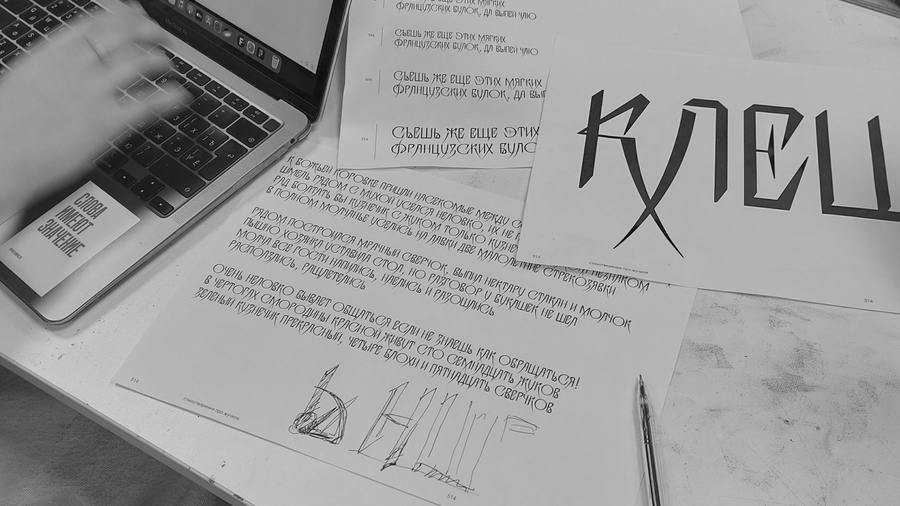 СЛОВА
ИМЕЮТ
ЗНАЧЕНИЕ
ЭТИХ МЯГКИХ
ФРАНЦУЗСКИХ БУЛОК, ДА ВЫПЕЙ ЧАЮ
СЪЕШЬ ЖЕ ЕЩЕ ЭТИХ МЯГКИХ
ФРАНЦУЗСКИХ БУЛОК, ДА ВЫПЕЙ ЧАЮ
СЪЕШЬ ЖЕ ЕЩЕ ЭТИХ МЯГКИХ
ФРАНЦУЗСКИХ БУЛОК, ДА ВЫП
СЪЕШЬ ЖЕ ЕЩЕ ЭТИХ
ФРАНЦУЗСКИХ БУЛО
КЛЕЩ
514
К БОЖЬЕЙ КОРОВКЕ ПРИШЛИ НАСЕКОМЫЕ МЕЖДУ
ШМЕЛЬ РЯДОМ С МУХОЙ УСЕЛСЯ НЕЛОВКО, ИХ НЕ
РАД БОЛТАТЬ БЫ КУЗНЕЧИК С ЖУКОМ ТОЛЬКО
В ПОЛНОМ МОЛЧАНЬЕ УСЕЛИСЬ НА ЛАВКИ ДВЕ СТРЕКОЗЯВКИ
РЯДОМ ПОСТРОИЛСЯ МРАЧНЫЙ СВЕРЧОК, ВЫПИЛ НЕКТАРУ СТАКАН И МОЛЧОК
ПЫШНО ХОЗЯЙКА УСТАВИЛА СТОЛ, НО РАЗГОВОР У БУКАШЕК НЕ ШЕЛ
МОЛЧА ВСЕ ГОСТИ НАПИЛИСЬ, НАЕЛИСЬ И РАЗОШЛИСЬ
РАСПОЛЗЛИСЬ, РАЗЛЕТЕЛИСЬ
ОЧЕНЬ НЕЛОВКО БЫВАЕТ ОБЩАТЬСЯ ЕСЛИ НЕ ЗНАЕШЬ КАК ОБРАЩАТЬСЯ!
В ЧЕРТОГАХ СМОРОДИНЫ КРАСНОЙ ЖИВУТ СТО СЕМНАДЦАТЬ ЖУКОВ
ЗЕЛЕНЫЙ КУЗНЕЧИК ПРЕКРАСНЫЙ, ЧЕТЫРЕ БЛОХИ И ПЯТНАДЦАТЬ СВЕРЧКОВ
514
514